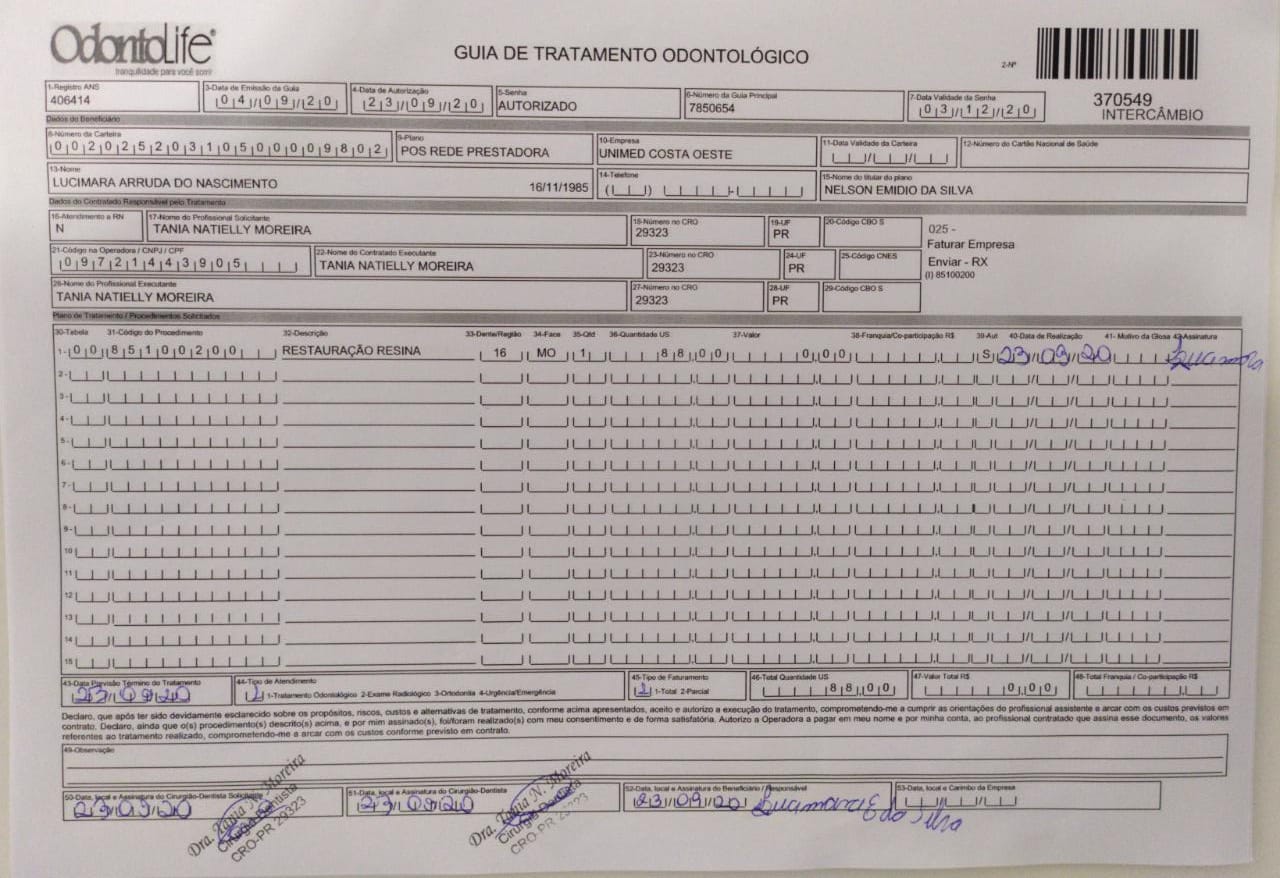 OdontoLife
tranquilidade para você sorrir
GUIA DE TRATAMENTO ODONTOLÓGICO
2-Nº
370549
INTERCÂMBIO
1-Registro ANS
406414
3-Data de Emissão da Guia
04/09/20
4-Data de Autorização
23/09/20
5-Senha
AUTORIZADO
6-Número da Guia Principal
7850654
7-Data Validade da Senha
03/12/20
Dados do Beneficiário
8-Número da Carteira
00202520310500009802
9-Plano
POS REDE PRESTADORA
10-Empresa
UNIMED COSTA OESTE
11-Data Validade da Carteira
12-Número do Cartão Nacional de Saúde
13-Nome
LUCIMARA ARRUDA DO NASCIMENTO 16/11/1985
14-Telefone
15-Nome do titular do plano
NELSON EMIDIO DA SILVA
Dados do Contratado Responsável pelo Tratamento
16-Atendimento a RN
N
17-Nome do Profissional Solicitante
TANIA NATIELLY MOREIRA
18-Número no CRO
29323
19-UF
PR
20-Código CBO S
025 -
Faturar Empresa
Enviar - RX
(I) 85100200
21-Código na Operadora / CNPJ / CPF
09721443905
22-Nome do Contratado Executante
TANIA NATIELLY MOREIRA
23-Número no CRO
29323
24-UF
PR
25-Código CNES
26-Nome do Profissional Executante
TANIA NATIELLY MOREIRA
27-Número no CRO
29323
28-UF
PR
29-Código CBO S
Plano de Tratamento / Procedimentos Solicitados
30-Tabela 31-Código do Procedimento 32-Descrição 33-Dente/Região 34-Face 35-Qtd 36-Quantidade US 37-Valor 38-Franquia/Co-participação R$ 39-Aut 40-Data de Realização 41- Motivo da Glosa 42-Assinatura
1- 00 85100200 RESTAURAÇÃO RESINA 16 MO 1 88,00 0,00 S 23/09/20
2-
3-
4-
5-
6-
7-
8-
9-
10
11
12
13
14
15
43-Data Previsão Término do Tratamento
23/09/20
44-Tipo de Atendimento
1 1-Tratamento Odontológico 2-Exame Radiológico 3-Ortodontia 4-Urgência/Emergência
45-Tipo de Faturamento
1 1-Total 2-Parcial
46-Total Quantidade US
88,00
47-Valor Total R$
0,00
48-Total Franquia / Co-participação R$
Declaro, que após ter sido devidamente esclarecido sobre os propósitos, riscos, custos e alternativas de tratamento, conforme acima apresentados, aceito e autorizo a execução do tratamento, comprometendo-me a cumprir as orientações do profissional assistente e arcar com os custos previstos em
contrato. Declaro, ainda que o(s) procedimento(s) descrito(s) acima, e por mim assinado(s), foi/foram realizado(s) com meu consentimento e de forma satisfatória. Autorizo a Operadora a pagar em meu nome e por minha conta, ao profissional contratado que assina esse documento, os valores
referentes ao tratamento realizado, comprometendo-me a arcar com os custos conforme previsto em contrato.
49-Observação
50-Data, local e Assinatura do Cirurgião-Dentista Solicitante
23/09/20
Dra. Tania N. Moreira
Cirurgiã Dentista
CRO-PR 29323
51-Data, local e Assinatura do Cirurgião-Dentista
23/09/20
Dra. Tania N. Moreira
Cirurgiã Dentista
CRO-PR 29323
52-Data, local e Assinatura do Beneficiário / Responsável
23/09/20
53-Data, local e Carimbo da Empresa